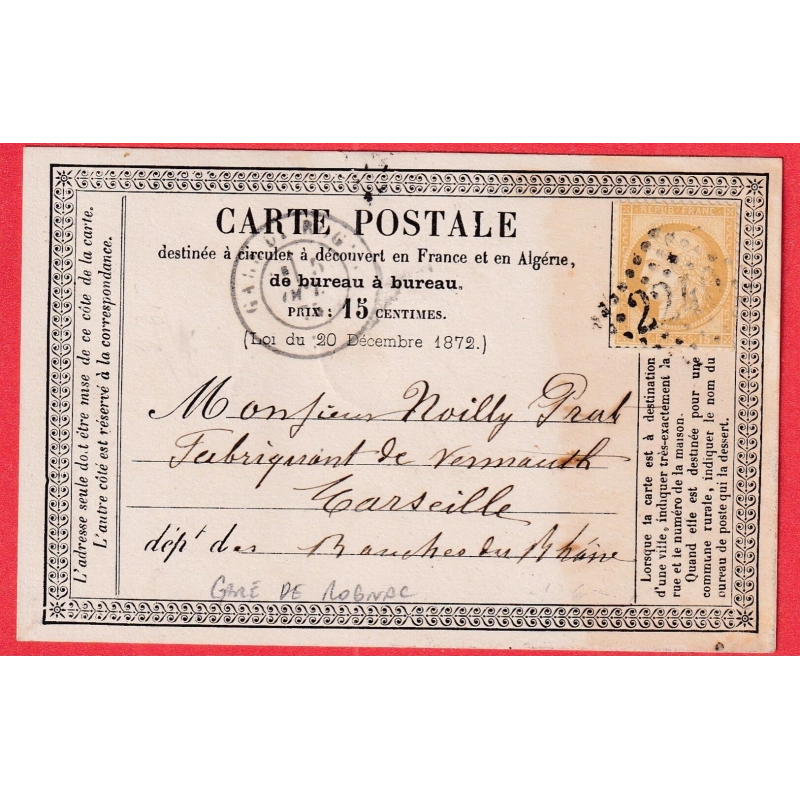 L'adresse seule doit être mise de ce côté de la carte.
L'autre côté est réservé à la correspondance.
CARTE POSTALE
destinée à circuler à découvert en France et en Algérie,
de bureau à bureau.
PRIX : 15 CENTIMES.
(Loi du 20 Décembre 1872.)
REPUB FRANC
Monsieur Noilly Prat
Fabriquant de Vermouth
Marseille
dépt des Bouches du Rhône
GARE DE ROGNAC
Lorsque la carte est à destination
d'une ville, indiquer très-exactement la
rue et le numéro de la maison.
Quand elle est destinée pour une
commune rurale, indiquer le nom du
bureau de poste qui la dessert.